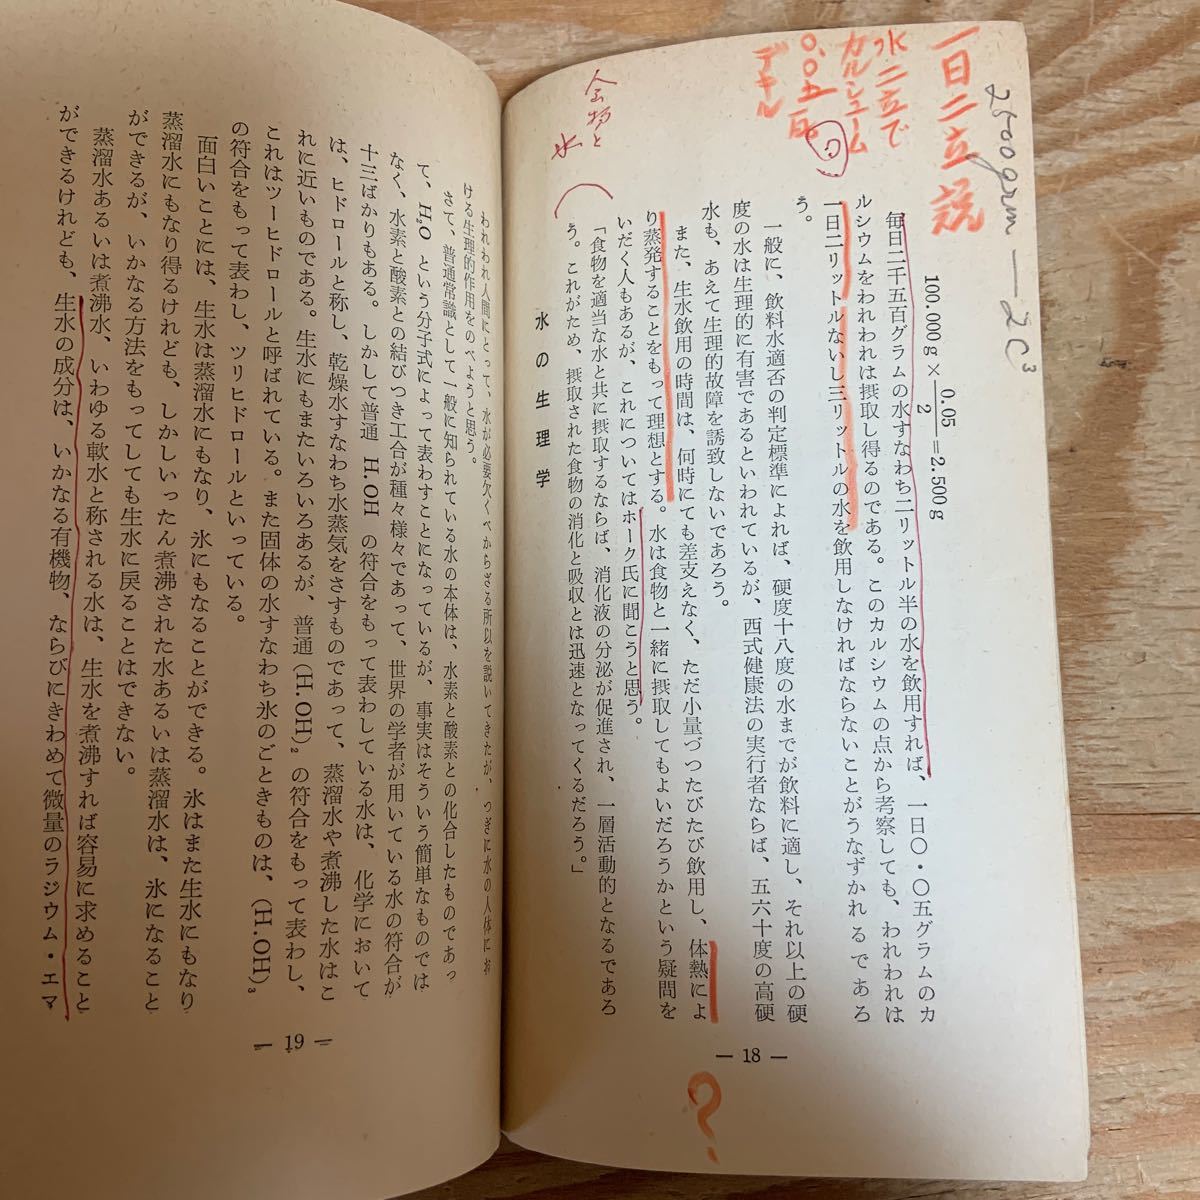 一日二立説
2500grm — 2C³
水二立で
カルシューム
〇、〇五
デキル
食物と
水
100.000g × 0.05/2 = 2.500g
毎日二千五百グラムの水すなわち二リットル半の水を飲用すれば、一日〇・〇五グラムのカ
ルシウムをわれわれは摂取し得るのである。このカルシウムの点から考察しても、われわれは
一日二リットルないし三リットルの水を飲用しなければならないことがうなずかれるであろ
う。
一般に、飲料水適否の判定標準によれば、硬度十八度の水までが飲料に適し、それ以上の硬
度の水は生理的に有害であるといわれているが、西式健康法の実行者ならば、五六十度の高硬
水も、あえて生理的故障を誘致しないであろう。
また、生水飲用の時間は、何時にても差支えなく、ただ小量づつたびたび飲用し、体熱によ
り蒸発することをもって理想とする。水は食物と一緒に摂取してもよいだろうかという疑問を
いだく人もあるが、これについてはホーク氏に聞こうと思う。
「食物を適当な水と共に摂取するならば、消化液の分泌が促進され、一層活動的となるであろ
う。これがため、摂取された食物の消化と吸収とは迅速となってくるだろう。」
水の生理学
— 18 —
?
われわれ人間にとって、水が必要欠くべからざる所以を説いてきたが、つぎに水の人体にお
ける生理的作用をのべようと思う。
さて、普通常識として一般に知られている水の本体は、水素と酸素との化合したものであっ
て、H₂O という分子式によって表わすことになっているが、事実はそういう簡単なものでは
なく、水素と酸素との結びつき工合が種々様々であって、世界の学者が用いている水の符合が
十三ばかりもある。しかして普通 H.OH の符合をもって表わしている水は、化学において
は、ヒドロールと称し、乾燥水すなわち水蒸気をさすものであって、蒸溜水や煮沸した水はこ
れに近いものである。生水にもまたいろいろあるが、普通(H.OH)₂の符合をもって表わし、
これはツーヒドロールと呼ばれている。また固体の水すなわち氷のごときものは、(H.OH)₃
の符合をもって表わし、ツリヒドロールといっている。
面白いことには、生水は蒸溜水にもなり、氷にもなることができる。氷はまた生水にもなり
蒸溜水にもなり得るけれども、しかしいったん煮沸された水あるいは蒸溜水は、氷になること
ができるが、いかなる方法をもってしても生水に戻ることはできない。
蒸溜水あるいは煮沸水、いわゆる軟水と称される水は、生水を煮沸すれば容易に求めること
ができるけれども、生水の成分は、いかなる有機物、ならびにきわめて微量のラジウム・エマ
— 19 —